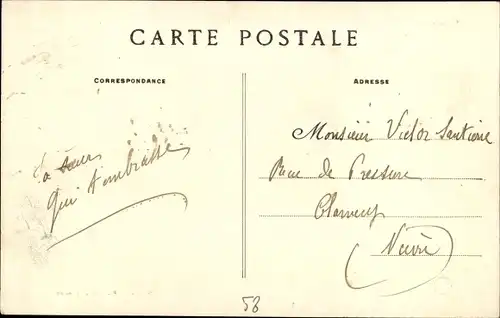 CARTE POSTALE
CORRESPONDANCE
Ta sœur
qui t'embrasse
ADRESSE
Monsieur Victor
Rue de Pressure
Clamecy
Nièvre
58